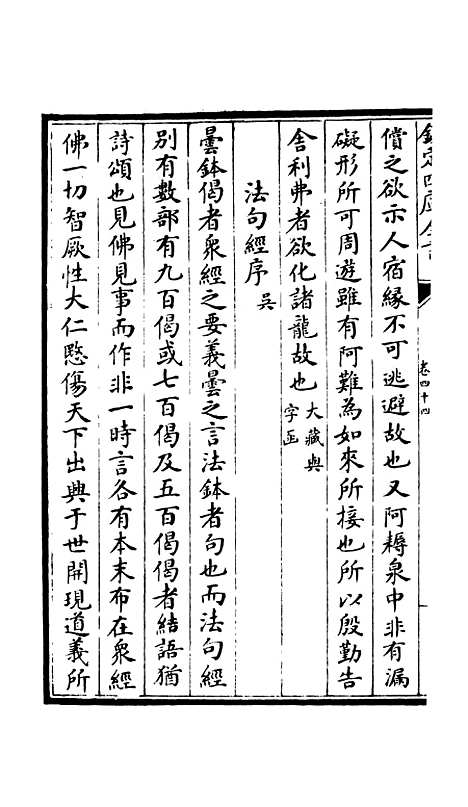 欽定四庫全書
卷四十四
償之欲示人宿緣不可逃避故也又阿耨泉中非有漏
礙形所可周遊雖有阿難為如來所接也所以殷勤告
舍利弗者欲化諸龍故也大藏與
字函
法句經序
吳
曇鉢偈者衆經之要義曇之言法鉢者句也而法句經
別有數部有九百偈或七百偈及五百偈偈者結語猶
詩頌也見佛見事而作非一時言各有本末布在衆經
佛一切智厥性大仁愍傷天下出興于世開現道義所